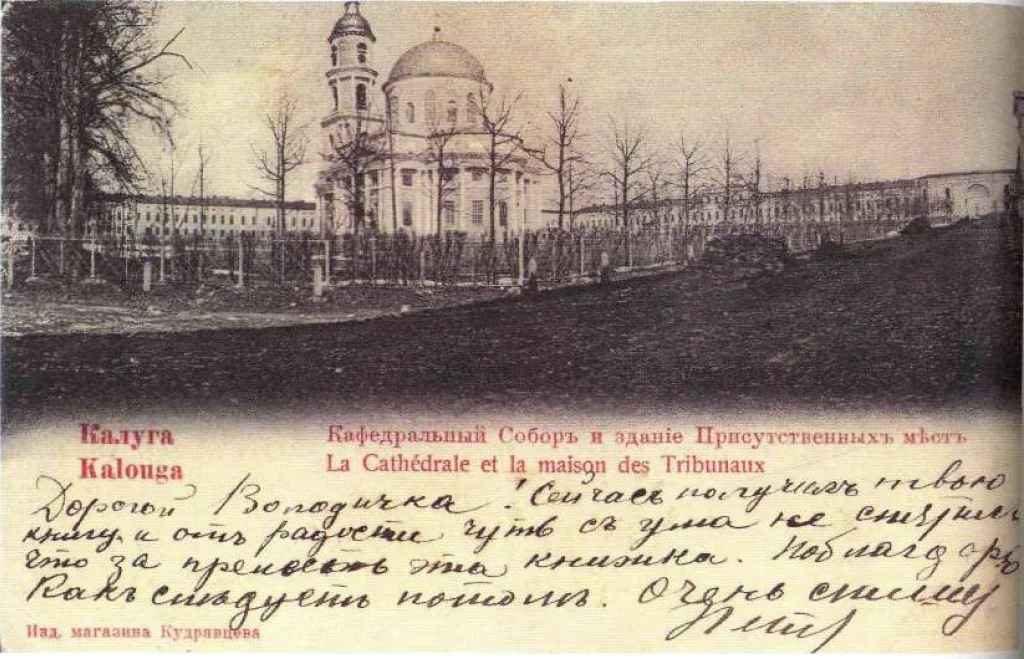 Калуга
Kalouga
Кафедральный Соборъ и зданіе Присутственныхъ мѣстъ
La Cathédrale et la maison des Tribunaux
Дорогой Володичка! Сейчасъ получилъ твою
книгу и отъ радости чуть съ ума не
что за прелесть эта книжка. Поблагодарю
Какъ слѣдуетъ потомъ. Очень спѣшу
Петр
Изд. магазина Кудрявцева